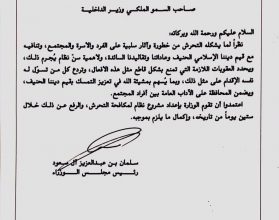 صاحب السمو الملكي وزير الداخلية
السلام عليكم ورحمة الله وبركاته:
نظراً لما يشكله التحرش من خطورة وآثار سلبية على الفرد والأسرة والمجتمع، وتنافيه
مع قيم ديننا الإسلامي الحنيف وعاداتنا وتقاليدنا السائدة، ولأهمية سنّ نظام يُجرم ذلك،
ويحدد العقوبات اللازمة التي تمنع بشكل قاطع مثل هذه الأفعال، وتردع كل من تسول له
نفسه الإقدام على مثل ذلك، وبما يُسهم بمشيئة الله في تعزيز التمسك بقيم ديننا الحنيف،
ويضمن المحافظة على الآداب العامة بين أفراد المجتمع.
اعتمدوا أن تقوم الوزارة بإعداد مشروع نظام لمكافحة التحرش، والرفع عن ذلك خلال
ستين يوماً من تاريخه، وإكمال ما يلزم بموجبه.
سلمان بن عبدالعزيز آل سعود
رئيس مجلس الوزراء